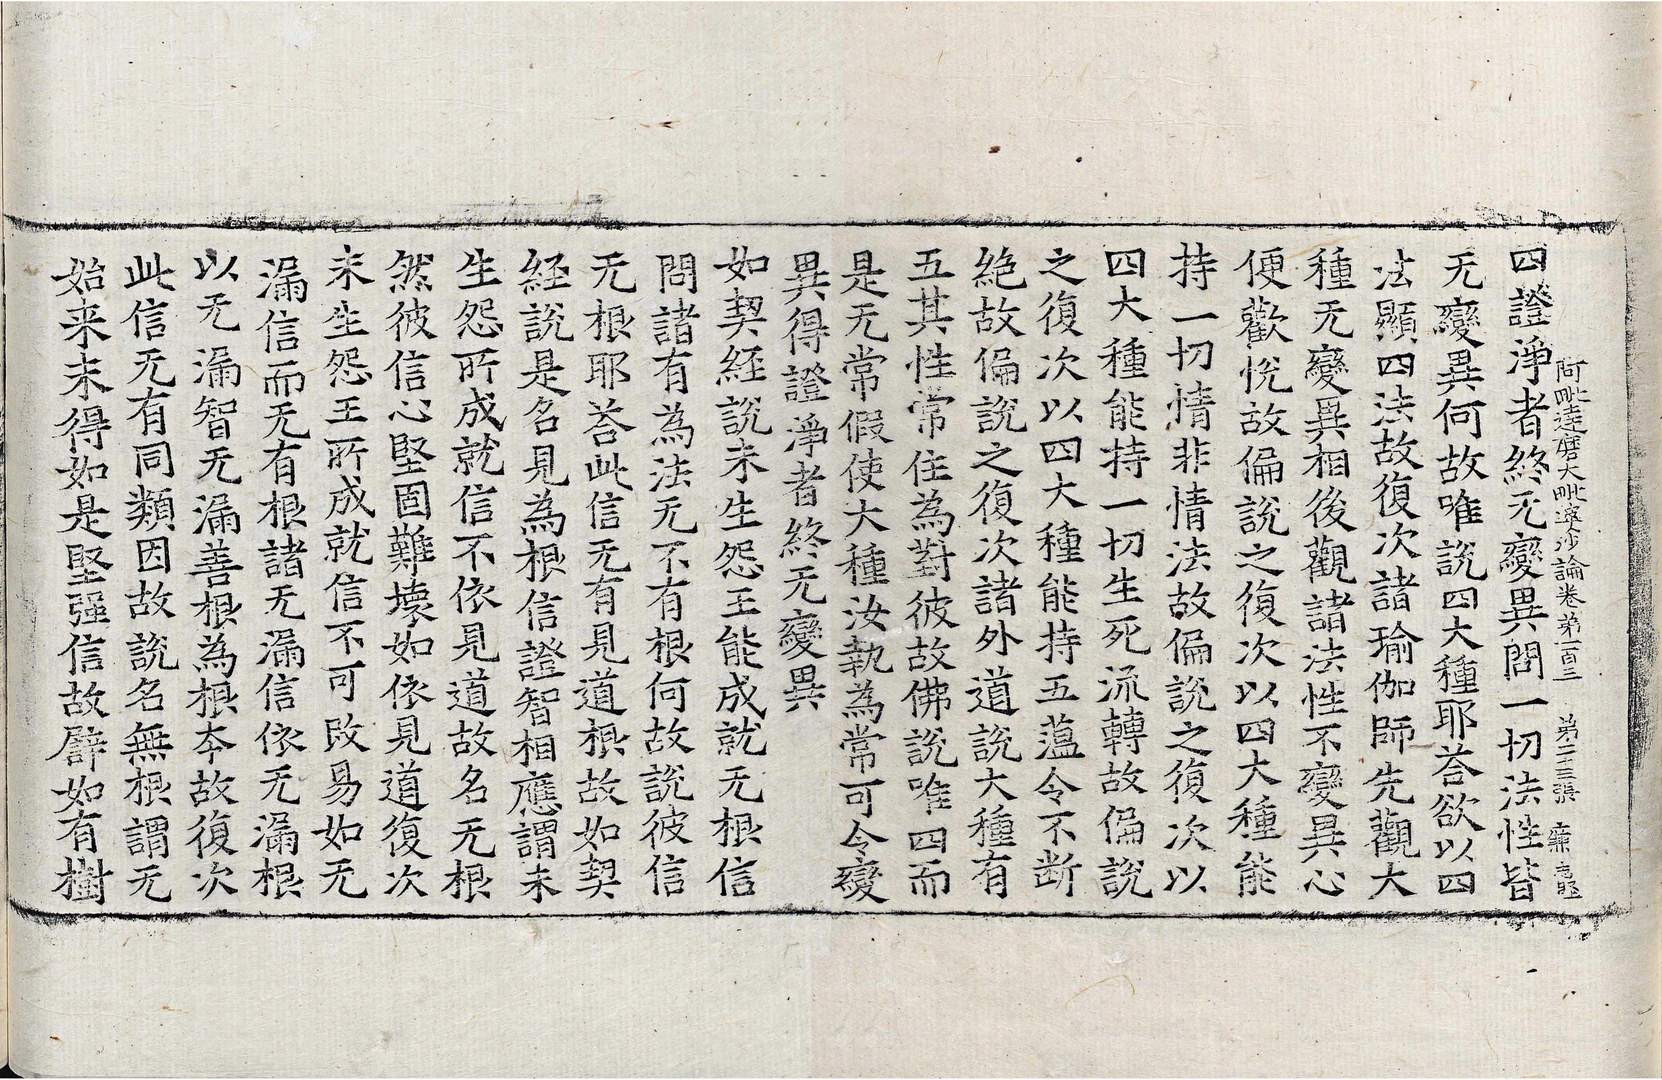 阿毗達磨大毗婆沙論卷第一百三　第二十三張　廉
四證淨者終无變異問一切法性皆
无變異何故唯說四大種耶荅欲以四
法顯四法故復次諸瑜伽師先觀大
種无變異相後觀諸法性不變異心
便歡悅故偏說之復次以四大種能
持一切情非情法故偏說之復次以
四大種能持一切生死流轉故偏說
之復次以四大種能持五薀令不断
絶故偏說之復次諸外道說大種有
五其性常住為對彼故佛說唯四而
是无常假使大種汝執為常可令變
異得證淨者終无變異
如契経說未生怨王能成就无根信
問諸有為法无不有根何故說彼信
无根耶荅此信无有見道根故如契
経說是名見為根信證智相應謂未
生怨所成就信不依見道故名无根
然彼信心堅固難壞如依見道復次
未生怨王所成就信不可改易如无
漏信而无有根諸无漏信依无漏根
以无漏智无漏善根為根夲故復次
此信无有同類因故說名無根謂无
始来未得如是堅强信故譬如有樹